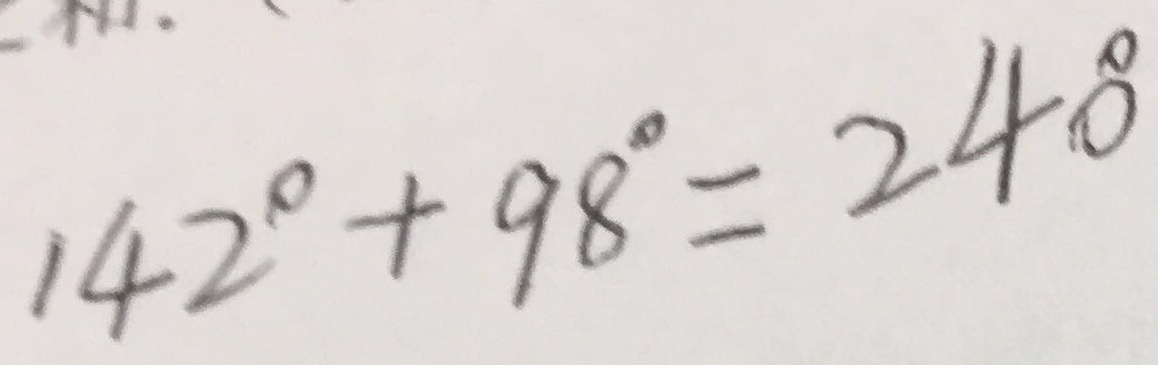 142° + 98° = 240°